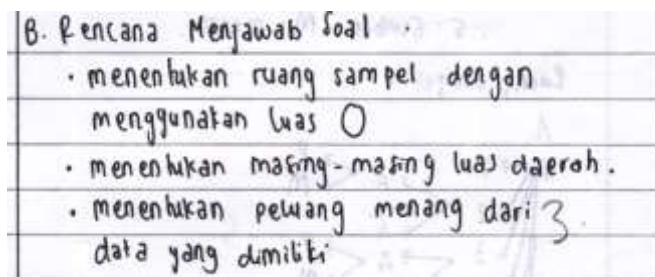 B. Rencana Menjawab Soal .
• menentukan ruang sampel dengan
menggunakan luas O
• menentukan masing-masing luas daerah.
• menentukan peluang menang dari 3
data yang dimiliki